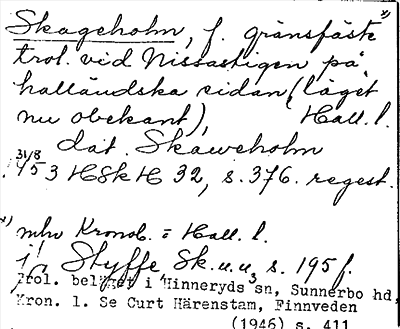 Skageholm, f. gränsfäste x)
trol. vid Nissastigen på
halländska sidan (läget
nu obekant), Hall. l.
dat. Skaweholm
31/8 1453 HSkH 32, s. 376. regest.
x) mhv Kronob. = Hall. l.
jfr Styffe Sk.u.u, s. 195 f.
Trol. beläget i Hinneryds sn, Sunnerbo hd,
Kron. l. Se Curt Härenstam, Finnveden
(1946) s. 411